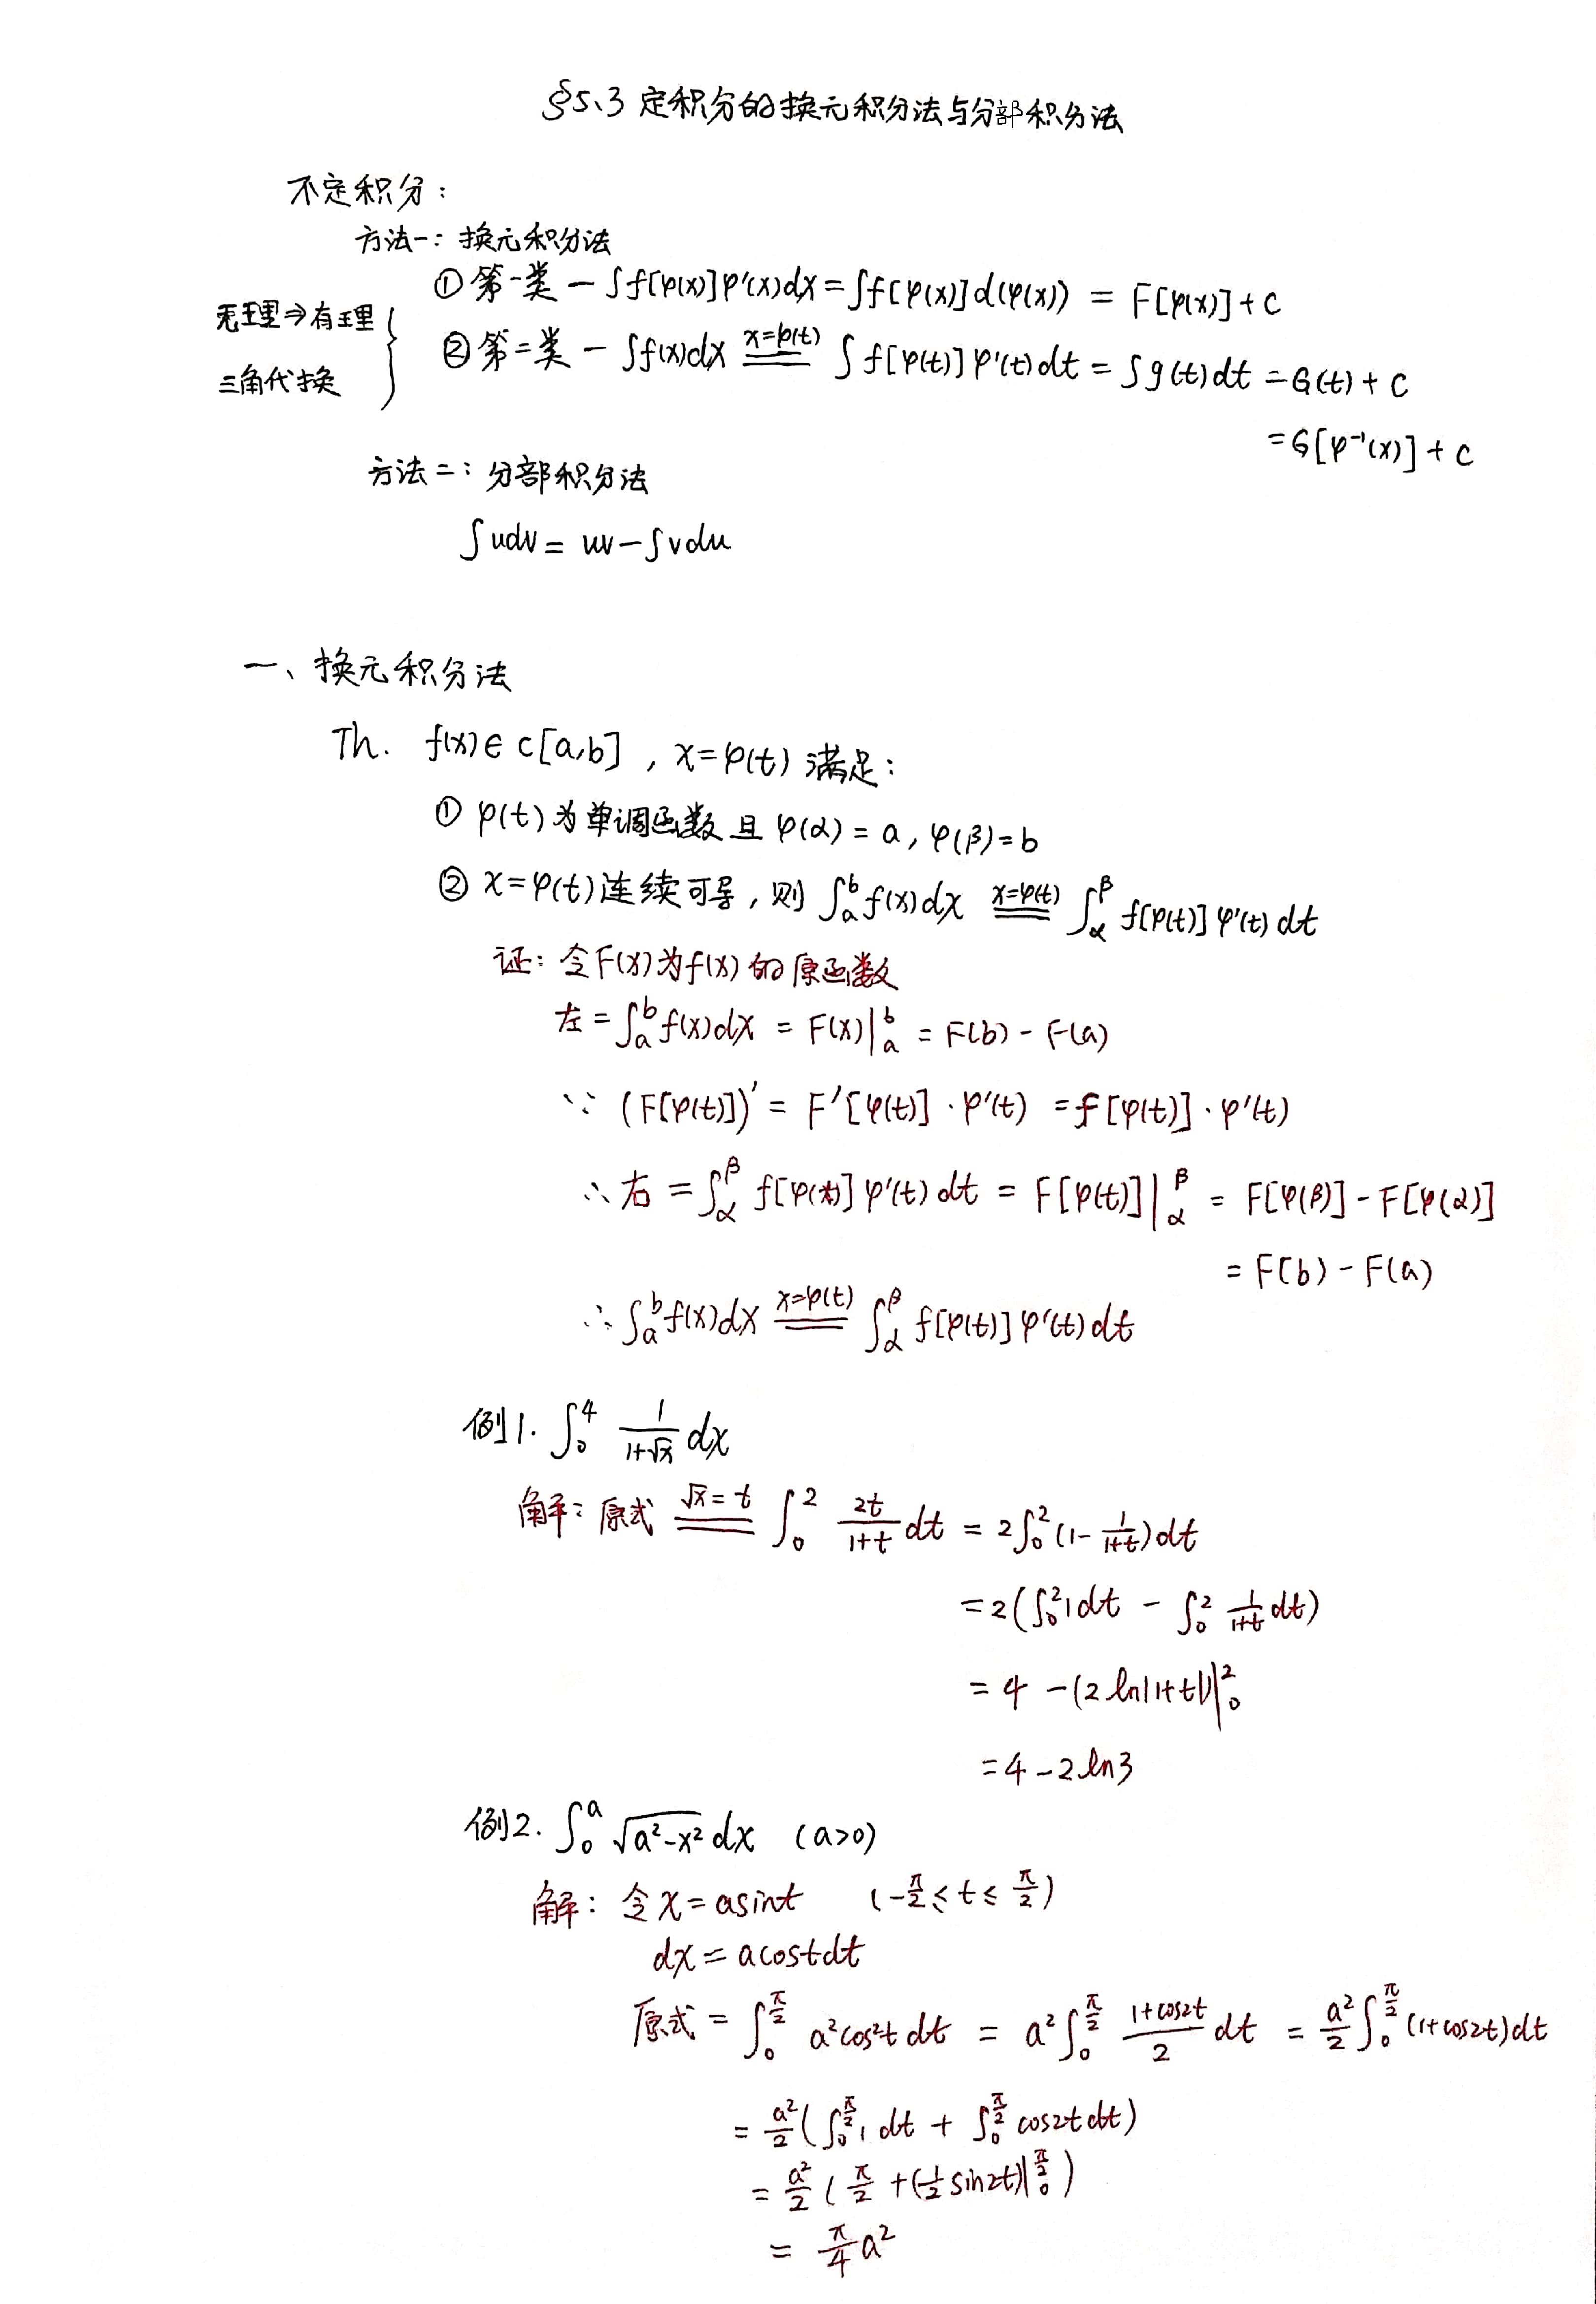 §5.3 定积分的换元积分法与分部积分法
不定积分：
方法一：换元积分法
①第一类 — ∫f[φ(x)]φ'(x)dx = ∫f[φ(x)]d(φ(x)) = F[φ(x)] + C
无理⇒有理
②第二类 — ∫f(x)dx \xlongequal{x=φ(t)} ∫f[φ(t)]φ'(t)dt = ∫g(t)dt = G(t) + C
三角代换
= G[φ⁻¹(x)] + C
方法二：分部积分法
∫udv = uv - ∫vdu
一、换元积分法
Th. f(x)∈C[a,b]，x=φ(t)满足：
① φ(t)为单调函数且φ(α)=a, φ(β)=b
② x=φ(t)连续可导，则 ∫_a^b f(x)dx \xlongequal{x=φ(t)} ∫_α^β f[φ(t)]φ'(t)dt
证：令F(x)为f(x)的原函数
左 = ∫_a^b f(x)dx = F(x)|_a^b = F(b) - F(a)
∵ (F[φ(t)])' = F'[φ(t)]·φ'(t) = f[φ(t)]·φ'(t)
∴ 右 = ∫_α^β f[φ(t)]φ'(t)dt = F[φ(t)]|_α^β = F[φ(β)] - F[φ(α)]
= F(b) - F(a)
∴ ∫_a^b f(x)dx \xlongequal{x=φ(t)} ∫_α^β f[φ(t)]φ'(t)dt
例1. ∫_0^4 \frac{1}{1+√x} dx
解：原式 \xlongequal{√x=t} ∫_0^2 \frac{2t}{1+t} dt = 2∫_0^2 (1-\frac{1}{1+t})dt
= 2(∫_0^2 1dt - ∫_0^2 \frac{1}{1+t}dt)
= 4 - (2ln|1+t|)|_0^2
= 4 - 2ln3
例2. ∫_0^a \sqrt{a²-x²} dx (a>0)
解：令x=asint (-\frac{π}{2} ≤ t ≤ \frac{π}{2})
dx = acostdt
原式 = ∫_0^{\frac{π}{2}} a²cos²t dt = a²∫_0^{\frac{π}{2}} \frac{1+cos2t}{2} dt = \frac{a²}{2}∫_0^{\frac{π}{2}} (1+cos2t)dt
= \frac{a²}{2}(∫_0^{\frac{π}{2}} 1 dt + ∫_0^{\frac{π}{2}} cos2tdt)
= \frac{a²}{2}(\frac{π}{2} + (\frac{1}{2}sin2t)|_0^{\frac{π}{2}})
= \frac{π}{4}a²